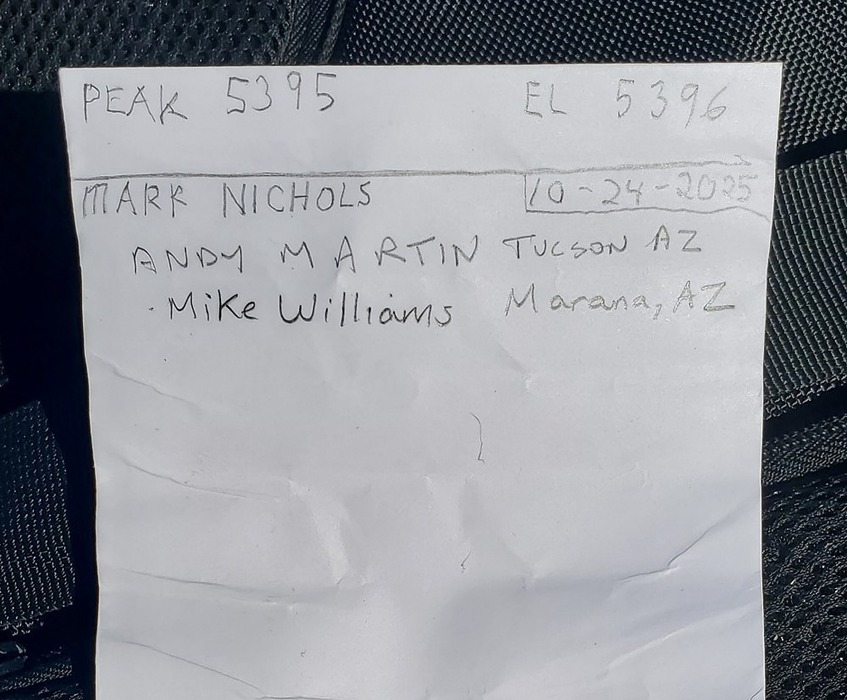 PEAK 5395 EL 5396
MARK NICHOLS 10-24-2025
ANDY MARTIN TUCSON AZ
Mike Williams Marana, AZ